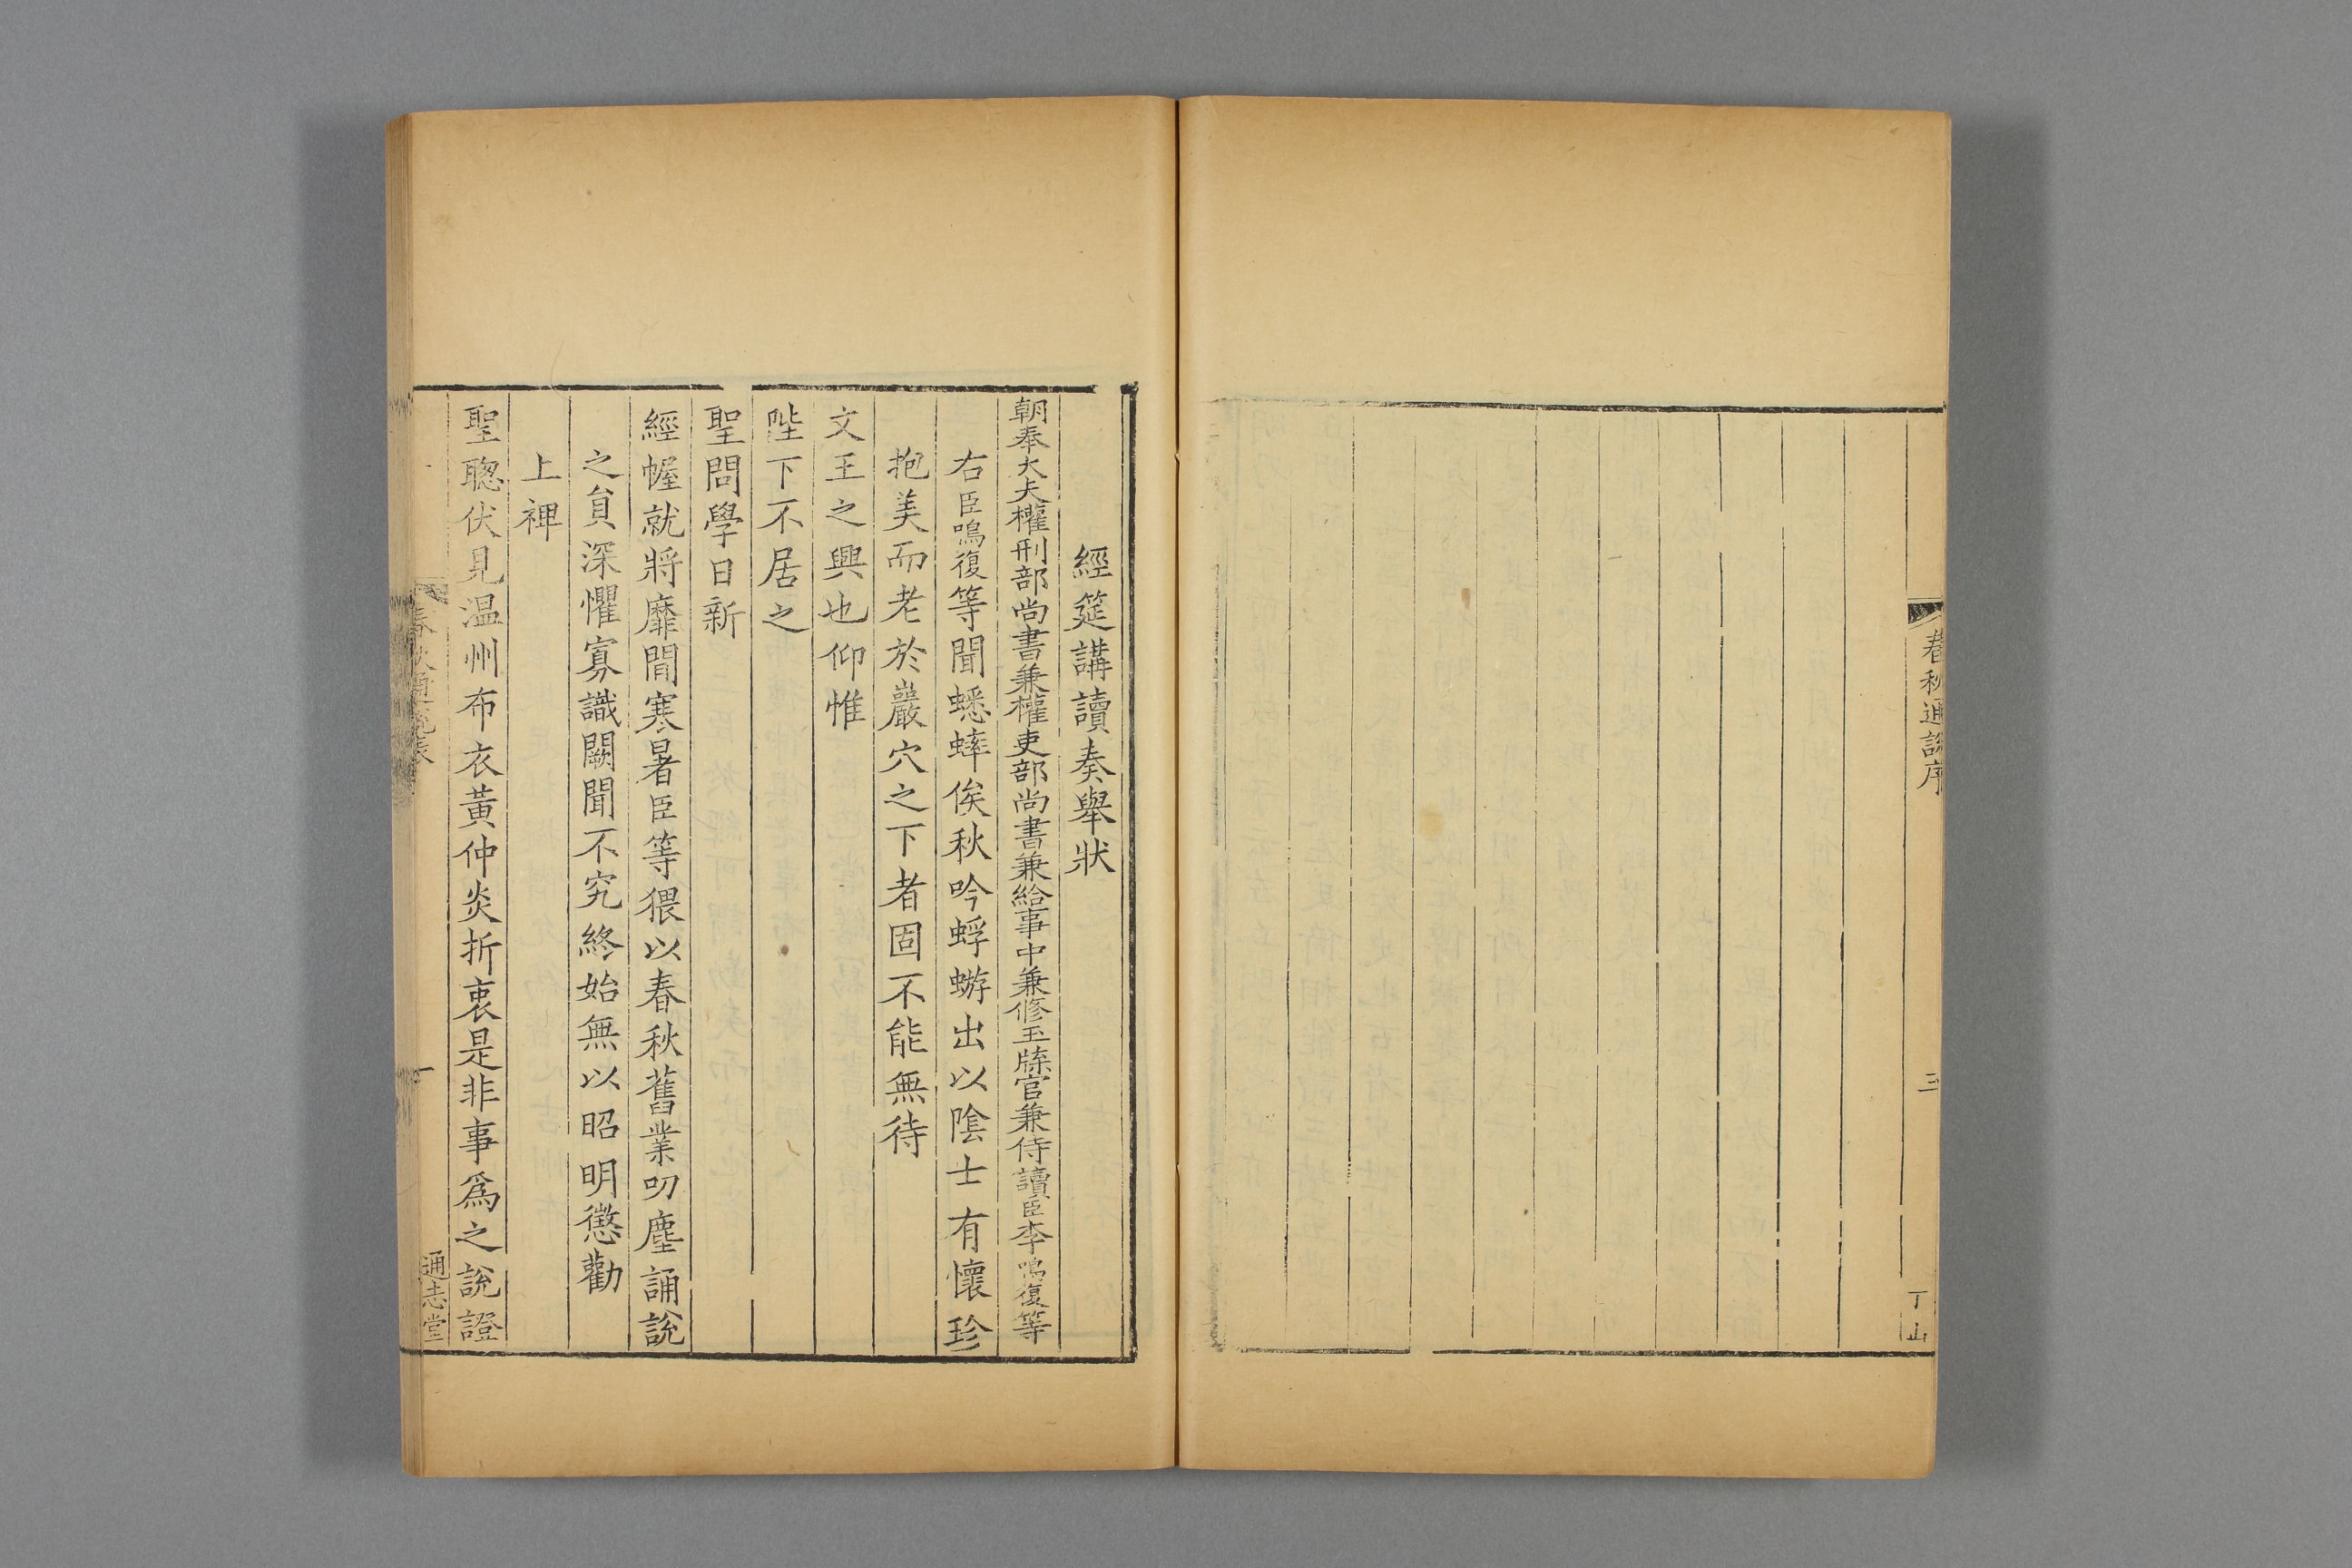 春秋通說序
三
丁山
經筵講讀奏舉狀
朝奉大夫權刑部尚書兼權吏部尚書兼給事中兼修玉牒官兼侍讀臣李鳴復等
右臣鳴復等聞蟋蟀俟秋吟蜉蝣出以陰士有懷珍
抱美而老於巖穴之下者固不能無待
文王之興也仰惟
陛下不居之
聖問學日新
經幄就將靡間寒暑臣等猥以春秋舊業叨塵誦說
之負深懼寡識闕聞不究終始無以昭明懲勸
上裨
聖聰伏見温州布衣黃仲炎折衷是非事爲之說證
春秋通說表
一
通志堂